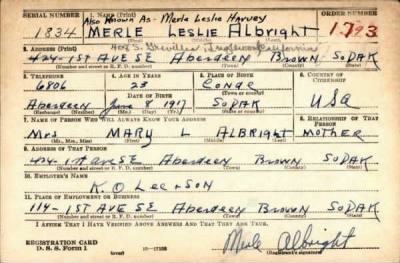 SERIAL NUMBER 1. NAME (Print) ORDER NUMBER
Also Known As - Merle Leslie Harvey
1834 MERLE LESLIE Albright 1793
(First) (Middle) (Last)
2. ADDRESS (Print)
404 S. Grevillea Inglewood California
424-1ST AVE SE Aberdeen BROWN SODAK
(Number and street or R. F. D. number) (Town) (County) (State)
3. TELEPHONE 4. AGE IN YEARS 5. PLACE OF BIRTH 6. COUNTRY OF CITIZENSHIP
6806 23 CONDE
DATE OF BIRTH
Aberdeen June 8 1917 SODAK USA
(Exchange) (Number) (Mo.) (Day) (Yr.) (Town) (County) (State or country)
7. NAME OF PERSON WHO WILL ALWAYS KNOW YOUR ADDRESS 8. RELATIONSHIP OF THAT PERSON
Mrs MARY L ALBRIGHT MOTHER
(Mr., Mrs., Miss) (First) (Middle) (Last)
9. ADDRESS OF THAT PERSON
424-1st AVE SE Aberdeen Brown SODAK
(Number and street or R. F. D. number) (Town) (County) (State)
10. EMPLOYER'S NAME
K. O Lee & SON
11. PLACE OF EMPLOYMENT OR BUSINESS
114-1ST AVE SE Aberdeen BROWN SODAK
(Number and street or R. F. D. number) (Town) (County) (State)
I AFFIRM THAT I HAVE VERIFIED ABOVE ANSWERS AND THAT THEY ARE TRUE.
REGISTRATION CARD
D. S. S. Form 1 (over) 16-17105 Merle Albright
(Registrant's signature)